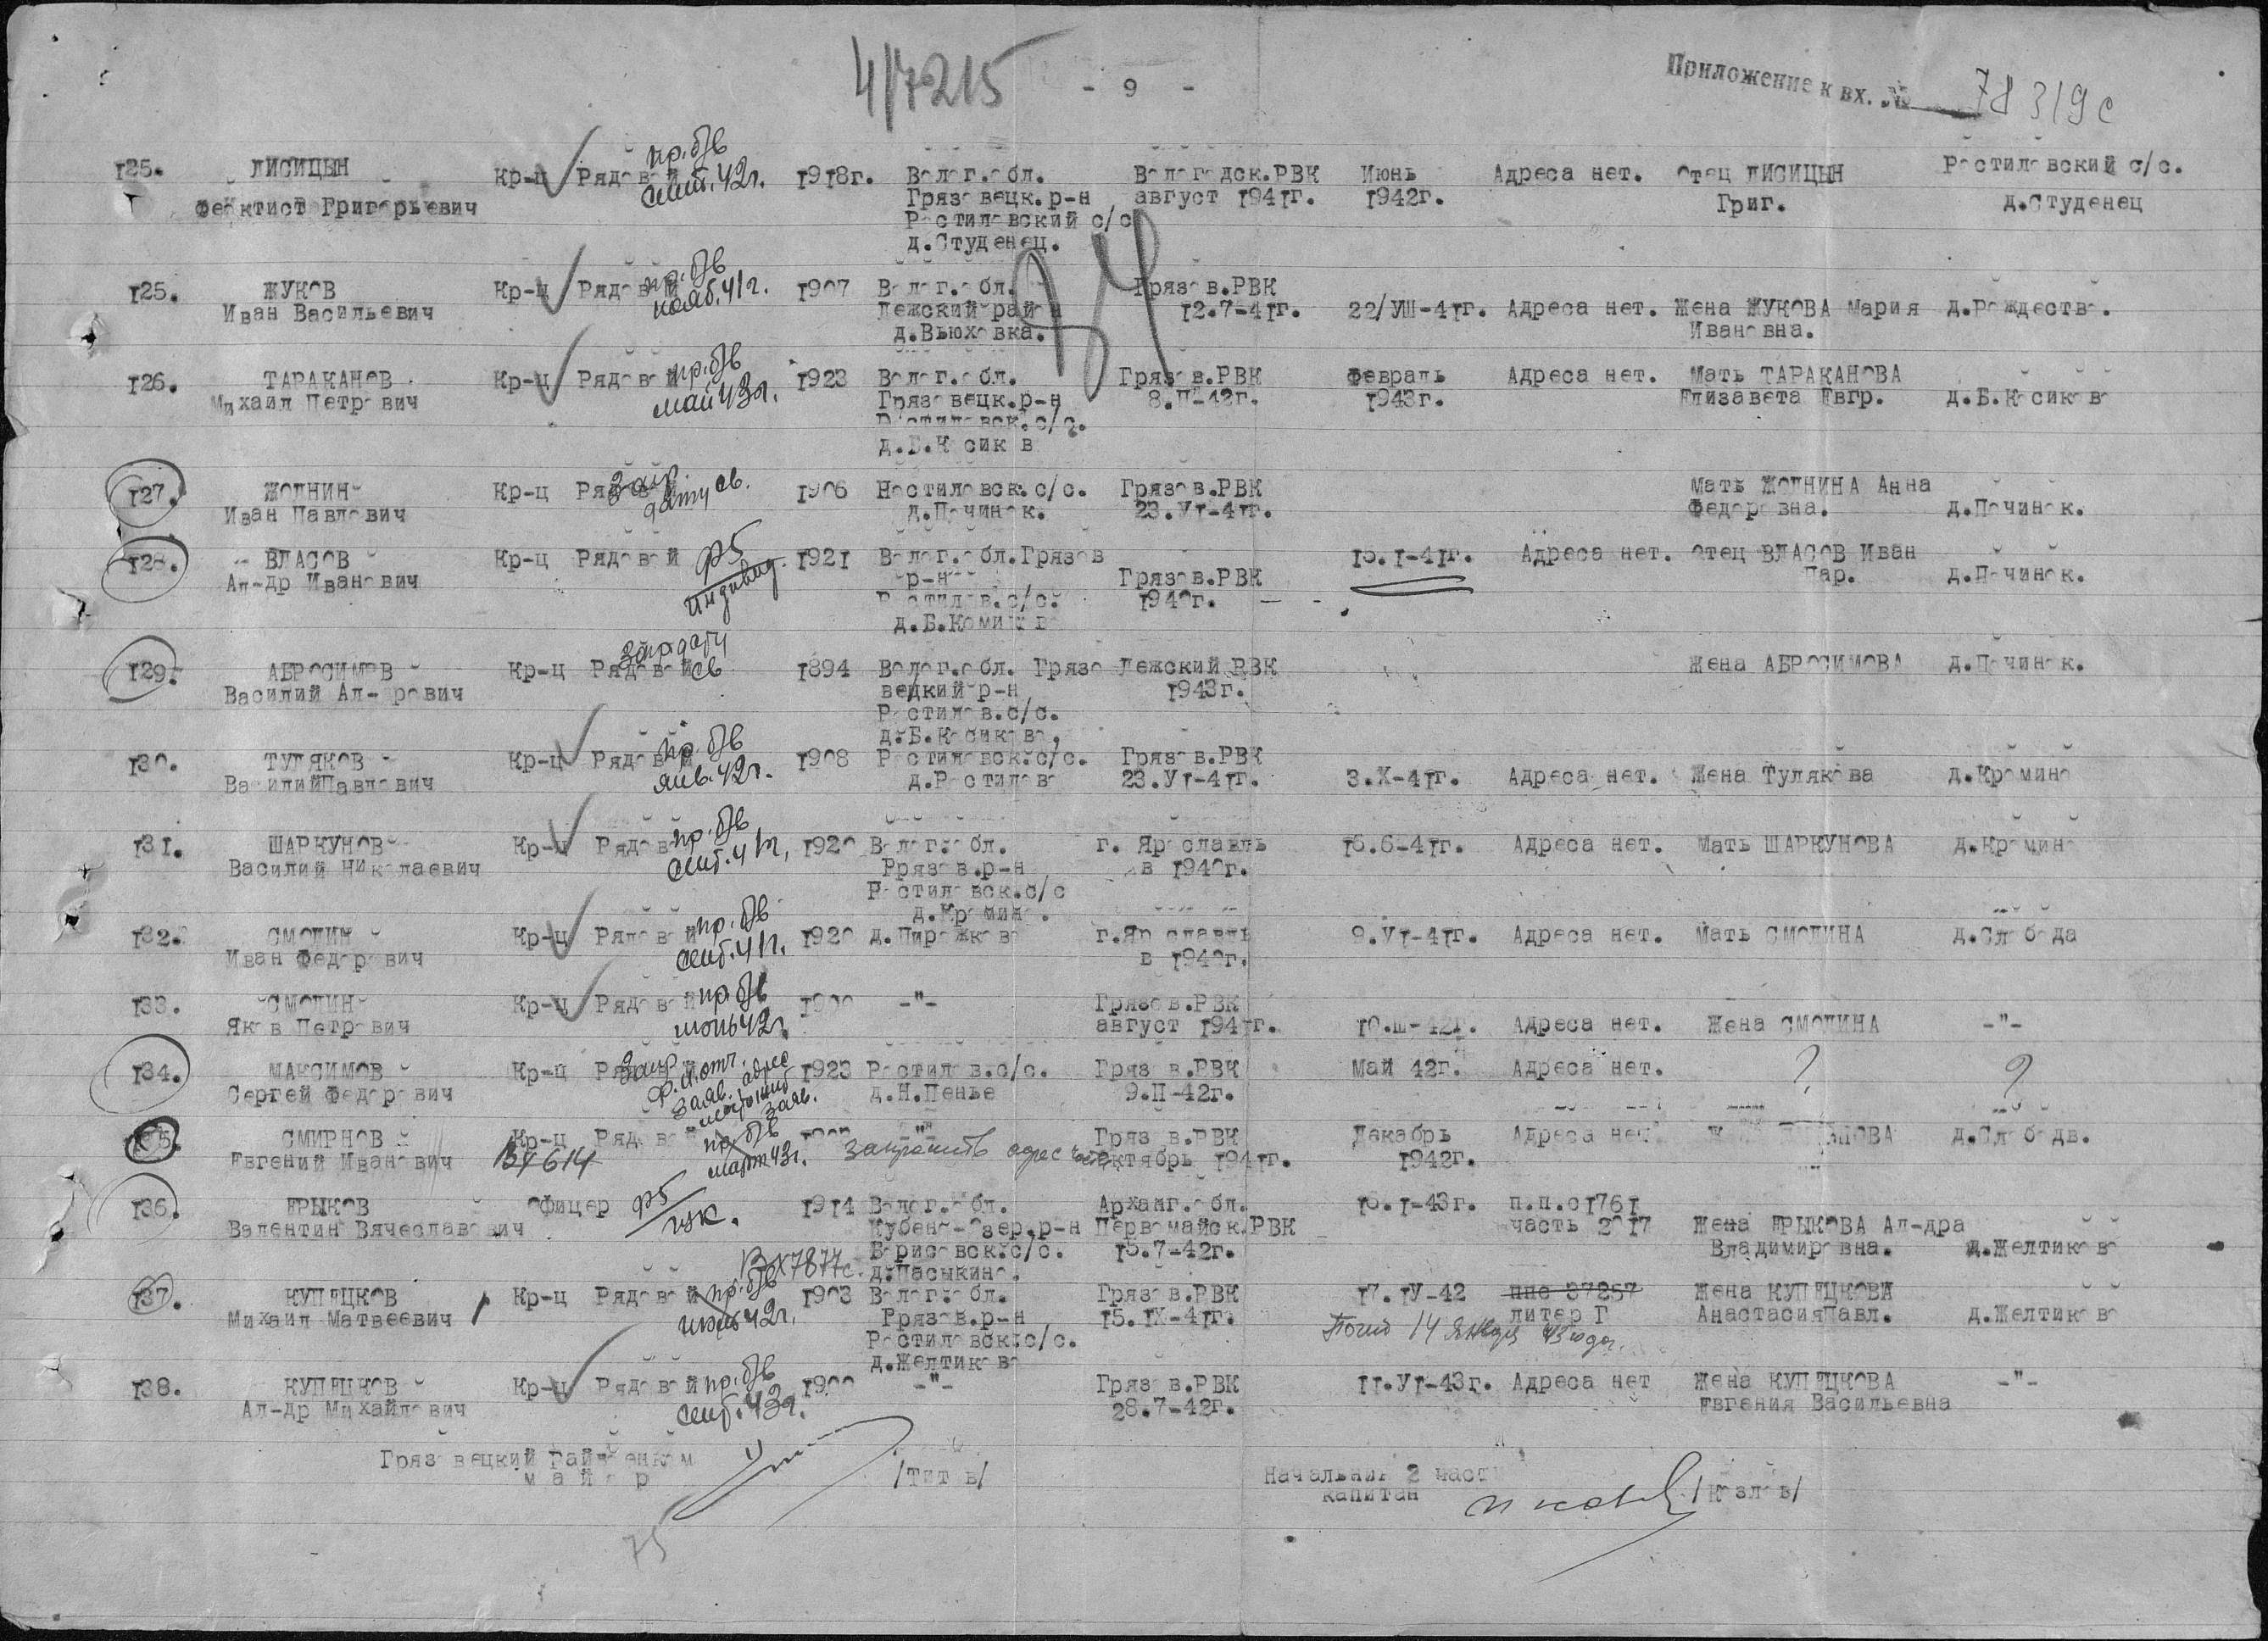 4/7215
- 9 -
Приложение к вх. № 78319с
125. ЛИСИЦЫН Кр-ц Рядовой пр. б/в 1918г. Волог.обл. Вологодск.РВК Июнь Адреса нет. Отец ЛИСИЦЫН Ростиловский с/с.
Феоктист Григорьевич сент. 42г. Грязовецк.р-н август 1941г. 1942г. Григ. д.Студенец
Ростиловский с/с
д.Студенец.
125. ЖУКОВ Кр-ц Рядовой пр. б/в 1907 Волог.обл. Грязов.РВК
Иван Васильевич нояб. 41г. Лежский район 12.7-41г. 22/УШ-41г. Адреса нет. Жена ЖУКОВА Мария д.Рождество.
д.Вьюховка. Ивановна.
126. ТАРАКАНОВ Кр-ц Рядовой пр. б/в 1923 Волог.обл. Грязов.РВК Февраль Адреса нет. Мать ТАРАКАНОВА
Михаил Петрович май 43г. Грязовецк.р-н 8.П-42г. 1943г. Елизавета Евгр. д.Б.Косиково
Ростиловск.с/с.
д.Б.Косиково
127. ЖОЛНИН Кр-ц Рядовой запр. дату св. 1906 Ростиловск.с/с. Грязов.РВК Мать ЖОЛНИНА Анна
Иван Павлович д.Починок. 23.УI-41г. Федоровна. д.Починок.
128. ВЛАСОВ Кр-ц Рядовой ф5 1921 Волог.обл.Грязов 15.I-41г. Адреса нет. Отец ВЛАСОВ Иван
Ал-др Иванович индивид. р-н Грязов.РВК Пар. д.Починок.
Ростилов.с/с. 1940г.
запр дату св
129. АБРОСИМОВ Кр-ц Рядовой 1894 Волог.обл. Грязо Лежский РВК Жена АБРОСИМОВА д.Починок.
Василий Ал-дрович вецкий р-н 1943г.
Ростилов.с/с.
д.Б.Косиково.
130. ТУЛЯКОВ Кр-ц Рядовой пр. б/в 1908 Ростиловск.с/с. Грязов.РВК
ВасилийПавлович янв. 42г. д.Ростилово 23.УI-41г. 3.Х-41г. Адреса нет. Жена Тулякова д.Кромино
131. ШАРКУНОВ Кр-ц Рядовой пр. б/в 1920 Волог.обл. г. Ярославль 15.6-41г. Адреса нет. Мать ШАРКУНОВА д.Кромино
Василий Николаевич сент. 41г. Ррязов.р-н в 1940г.
Ростиловск.с/с
д.Кромино.
132. СМОЛИН Кр-ц Рядовой пр. б/в 1920 д.Пирожково г.Ярославль 9.УI-41г. Адреса нет. Мать СМОЛИНА д.Слобода
Иван Федорович сент. 41г. в 1940г.
133. СМОЛИН Кр-ц Рядовой пр. б/в 1900 -"- Грязов.РВК
Яков Петрович июнь 42г. август 1941г. 10.Ш-42г. Адреса нет. Жена СМОЛИНА -"-
134. МАКСИМОВ Кр-ц Рядовой запр. 1923 Ростилов.с/с. Грязов.РВК Май 42г. Адреса нет. ? ?
Сергей Федорович ф.и.отч. заяв. адрес заяв. д.Н.Пенье 9.П-42г.
135. СМИРНОВ Кр-ц Рядовой пр. б/в -"- Грязов.РВК Декабрь Адреса нет. д.Слободв.
Евгений Иванович март 43г. запросить адрес октябрь 1941г. 1942г.
136. ЕРЫКОВ Офицер ф5 1914 Волог.обл. Арханг.обл. 16.I-43г. п.п.с1761
Валентин Вячеславович гук. Кубено-Озер.р-н Первомайск.РВК часть 2017 Жена ЕРЫКОВА Ал-дра
Борисовск.с/с. 15.7-42г. Владимировна. д.Желтиково
Вх7877с. д.Пасынкино.
137. КУПЕЦКОВ Кр-ц Рядовой пр. б/в 1903 Волог.обл. Грязов.РВК 17.IУ-42 ппс 37257 Жена КУПЕЦКОВА
Михаил Матвеевич июнь 42г. Ррязов.р-н 15.IX-41г. литер Г АнастасияПавл. д.Желтиково
Ростиловск.с/с. Погиб 14 января 43 года.
д.Желтиково
138. КУПЕЦКОВ Кр-ц Рядовой пр. б/в 1900 -"- Грязов.РВК 11.УI-43г. Адреса нет Жена КУПЕЦКОВА -"-
Ал-др Михайлович сент. 43г. 28.7-42г. Евгения Васильевна
Грязовецкий Райвоенком /Титов/ Начальник 2 части
майор капитан /Козлов/
75